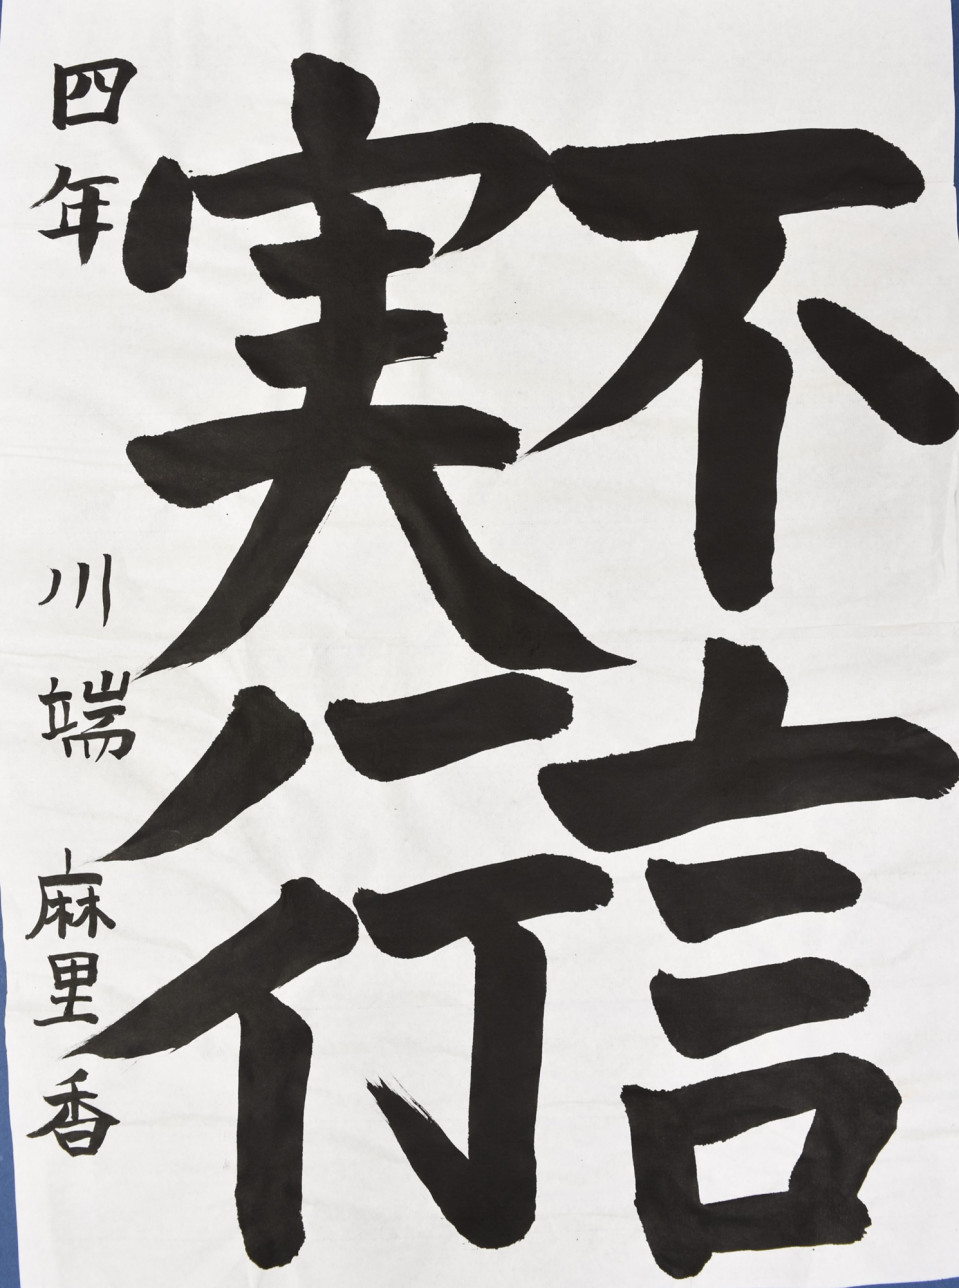 不言
実行
四年 川端 麻里香